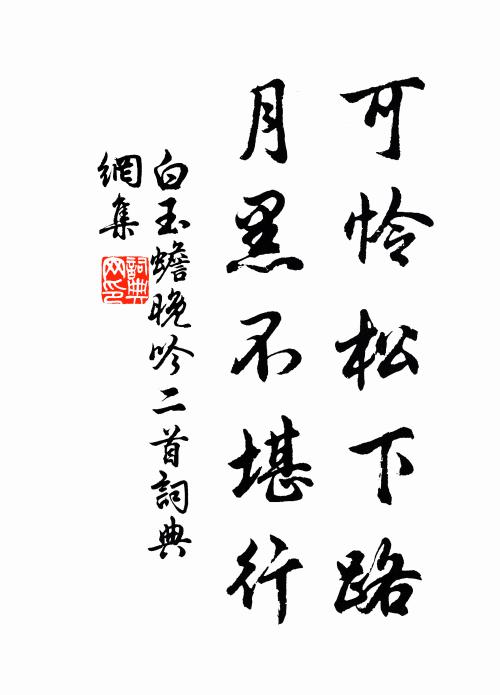 可怜松下路
月黑不堪行
白玉蟾晚吟二首詞典
網集
詞典
网印